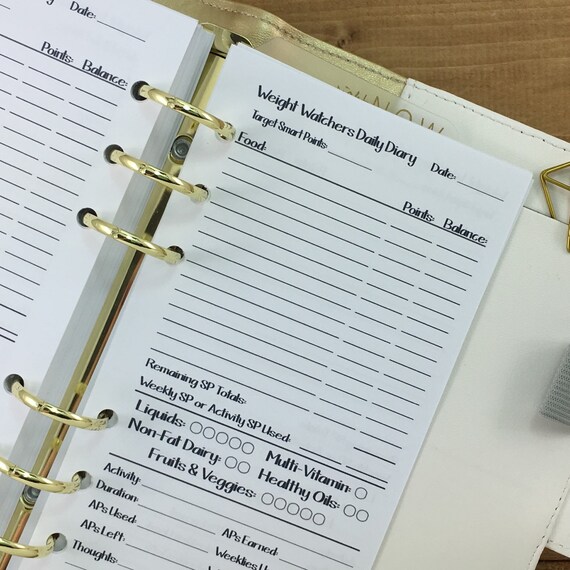 Date:
Points: Balance:
Weight Watchers Daily Diary
Target Smart Points: Date:
Food:
Points: Balance:
Remaining SP Totals:
Weekly SP or Activity SP Used:
Liquids: Multi-Vitamin:
Non-Fat Dairy: Healthy Oils:
Fruits & Veggies:
Activity:
Duration:
APs Used: APs Earned:
APs Left:
Thoughts: